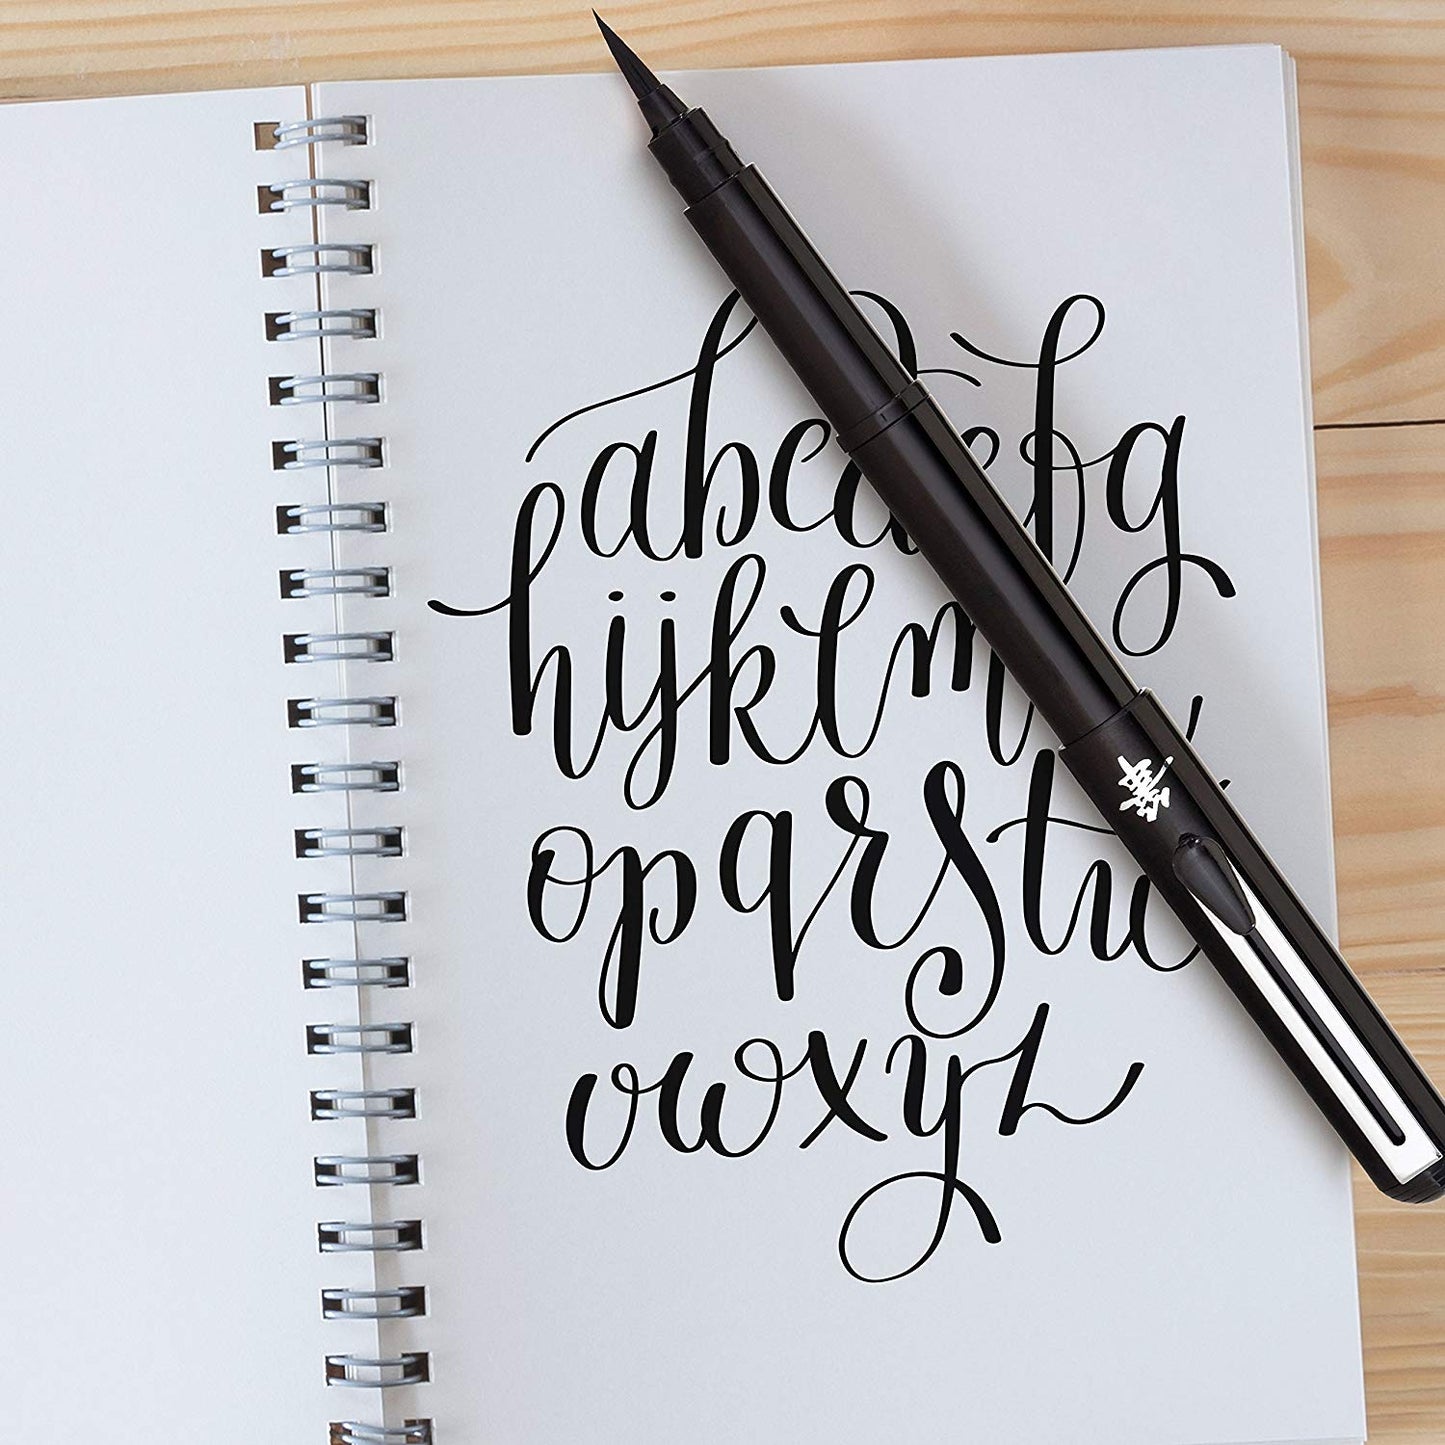 abcdefg
hijklm
opqrstu
vwxyz
華